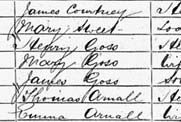 James Courtney
Mary Sweet
Henry Goss
Mary Goss
James Goss
Thomas Arnall
Emma Arnall